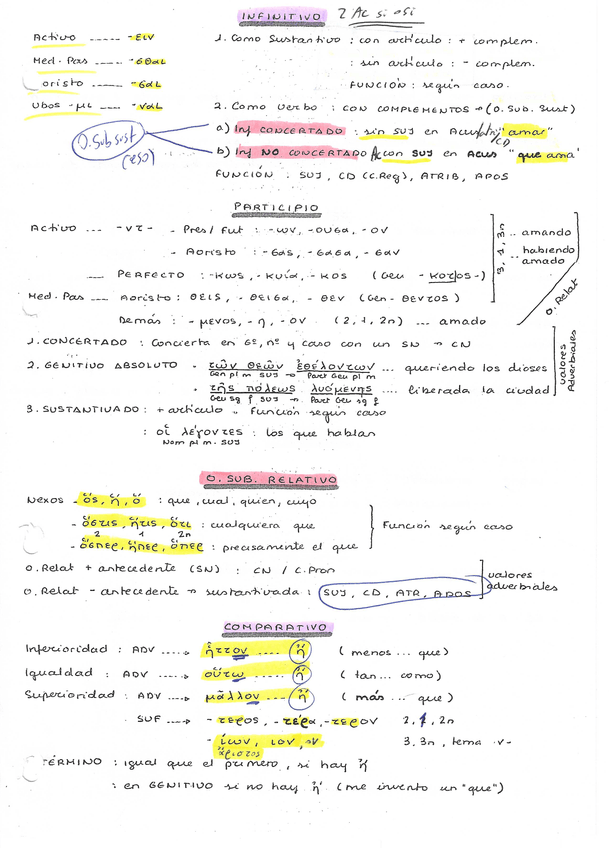 INFINITIVO 2 Ac si osi
Activo ..... -ειν
Med. Pas ---- -σθαι
Aoristo ---- -σαι
Vbos -μι ---- -ναι
1. Como Sustantivo : con artículo : + complem.
: sin artículo : - complem.
FUNCIÓN : según caso.
2. Como verbo : CON COMPLEMENTOS → (O. SUB. Sust)
O. Sub sust (eso)
a) Inf CONCERTADO : sin SUJ en Acus "amar" CD
b) Inf NO CONCERTADO Ac con SUJ en Acus "que ama"
FUNCIÓN : SUJ, CD (C.Reg), ATRIB, APOS
PARTICIPIO
Activo ... -ντ- - Pres/ Fut : -ων, -ουσα, -ον
- Aoristo : -σας, -σασα, -σαν
PERFECTO : -κως, -κυία, -κος (Gen - κοτος-)
3, 1, 3n .. amando
.. habiendo amado
O. Relat
Med. Pas --- Aoristo : θεις, - θεισα, - θεν (Gen- θεντος)
Demás : - μενος, -η, -ον (2, 1, 2n) ... amado
1. CONCERTADO : Concierta en Gº, nº y caso con un SN → CN
2. GENITIVO ABSOLUTO - τῶν θεῶν ἐθέλοντων ... queriendo los dioses
Gen pl m SUJ → Part Gen pl m
- τῆς πόλεως λυόμενης ... liberada la ciudad
Gen sg f SUJ → Part Gen sg f
valores Adverbiales
3. SUSTANTIVADO : + artículo → Función según caso
: οἵ λέγοντες : los que hablan
Nom pl m. SUJ
O. SUB. RELATIVO
Nexos - ὅς, ἥ, ὅ : que, cual, quien, cuyo
- ὅστις, ἥτις, ὅτι : cualquiera que
2 1 2n
- ὅσπερ, ἥπερ, ὅπερ : precisamente el que
Función según caso
O. Relat + antecedente (SN) : CN / C.Pron
O. Relat - antecedente → sustantivada : SUJ, CD, ATR, APOS
valores adverbiales
COMPARATIVO
Inferioridad : ADV ....→ ἧττον .... ἤ (menos ... que)
Igualdad : ADV ....→ οὕτω .... ἤ (tan ... como)
Superioridad : ADV ....→ μᾶλλον .... ἤ (más ... que)
SUF ---→ - τερος, - τέρα, - τερον 2, 1, 2n
- ίων, ιον, 3, 3n, tema -ν-
ἄριστος
TÉRMINO : igual que el primero, si hay ἤ
: en GENITIVO si no hay ἤ (me invento un "que")